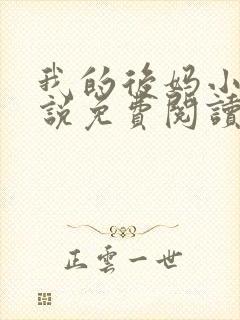 我的後妈小
說免費閱讀
正雲一世